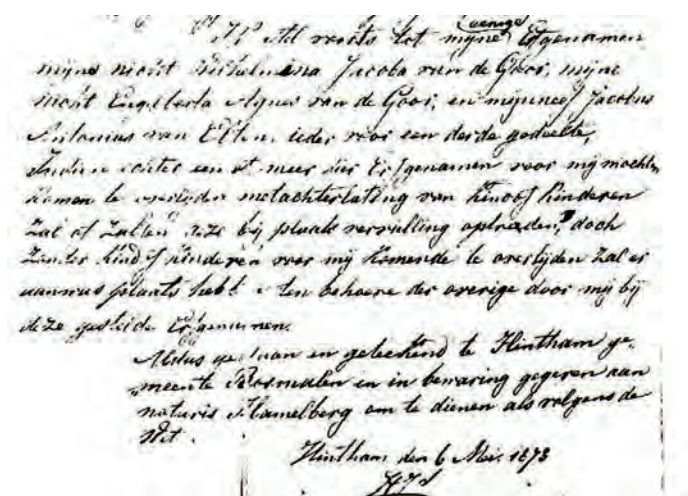 eenige
Ik stel voorts tot mijne Erfgenamen
mijne nicht Wilhelmina Jacoba van de Goor, mijne
nicht Engelberta Agnes van de Goor, en mijn neef Jacobus
Antonius van Etten ieder voor een derde gedeelte,
Indien echter een of meer der Erfgenamen voor mij mochten
komen te overlijden met achterlating van kind of kinderen
zal of zullen deze bij plaats vervulling optreden, doch
zonder kind of kinderen voor mij komende te overlijden zal er
aanwas plaats hebben ten behoeve der overige door mij bij
deze gestelde Erfgenamen.
Aldus gedaan en geteekend te Hintham ge„
„meente Rosmalen en in bewaring gegeven aan
notaris Hamelberg om te dienen als volgens de
Wet.
Hintham den 6 Mei 1873